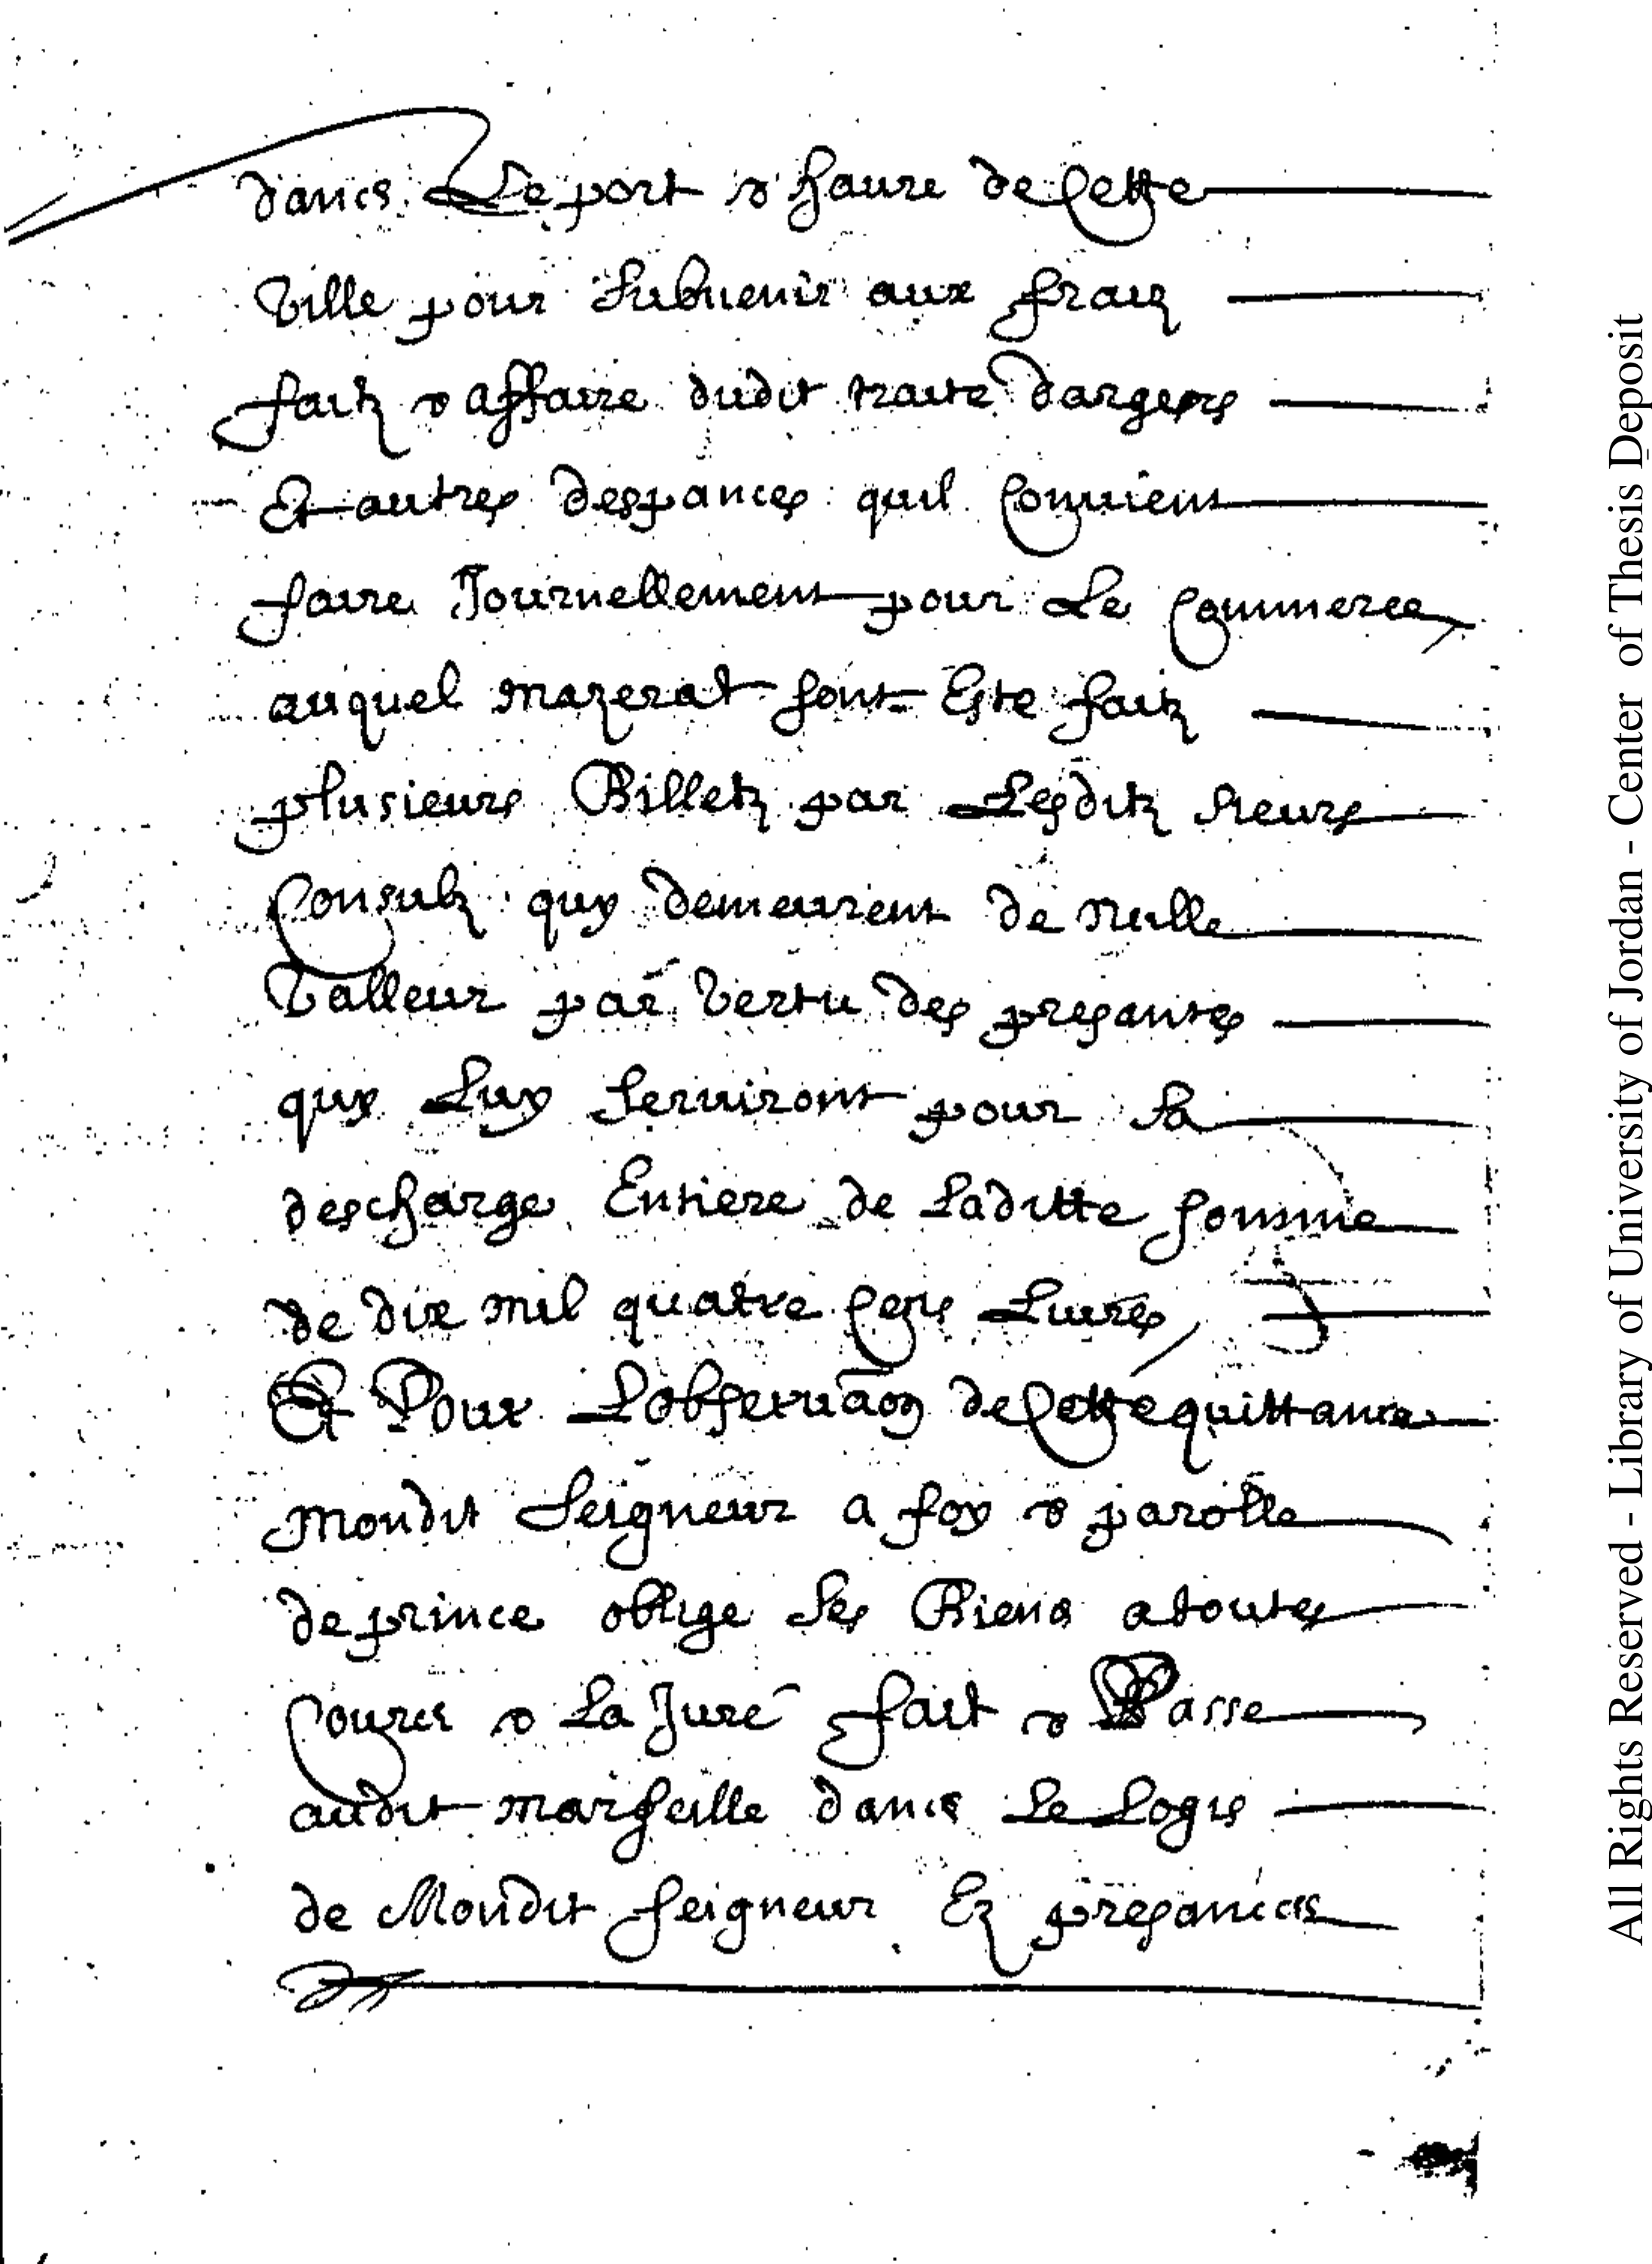 dancs Le port & haure de Cette
Ville pour Subuenir aux fraiz
faitz & affaire dudit traite dargers
Et autres despances quil Conuient
faire Journellement pour Le Commerce
auquel mazerat sont Este faitz
plusieurs Billetz par Lesditz sieurs
Consulz quy demeurent de nulle
Valleur par Vertu des presantes
quy Luy Seruiront pour Sa
descharge Entiere de Laditte somme
de dix mil quatre Cens Liures
Et Pour Lobseruaon de Cette quittance
Mondit Seigneur a foy & parolle
de prince oblige Ses Biens a toutes
Cources & La Juré fait & Passe
audit marseille dancs Le Logis
de Mondit seigneur Ez presances
All Rights Reserved - Library of University of Jordan - Center of Thesis Deposit